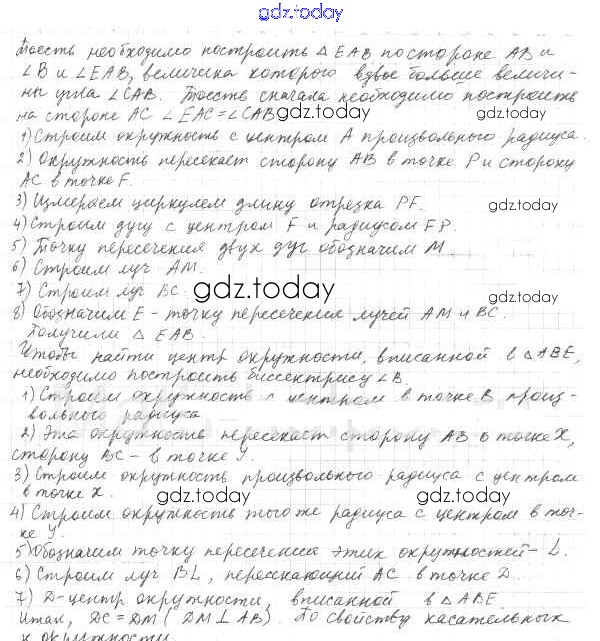 gdz.today
Тоесть необходимо построить △ EAB по стороне AB и
∠B и ∠EAB, величина которого вдвое больше величи-
ны угла ∠CAB. Тоесть сначала необходимо построить
на стороне AC ∠EAC=∠CAB gdz.today gdz.today
1) Строим окружность с центром A произвольного радиуса.
2) Окружность пересекает сторону AB в точке P и сторону
AC в точке F.
3) Измеряем циркулем длину отрезка PF. gdz.today
4) Строим дугу с центром F и радиусом FP.
5) Точку пересечения двух дуг обозначим M.
6) Строим луч AM.
7) Строим луч BC. gdz.today gdz.today
8) Обозначим E - точку пересечения лучей AM и BC.
Получили △ EAB.
Чтобы найти центр окружности, вписанной в △ABE,
необходимо построить биссектрису ∠B.
1) Строим окружность с центром в точке B произ-
вольного радиуса
2) Эта окружность пересекает сторону AB в точке X,
сторону BC - в точке Y.
3) Строим окружность произвольного радиуса с центром
в точке X. gdz.today gdz.today
4) Строим окружность того же радиуса с центром в точ-
ке Y.
5) Обозначим точку пересечения этих окружностей - L.
6) Строим луч BL, пересекающий AC в точке D.
7) D-центр окружности, вписанной в △ABE.
Итак, DC=DM (DM⊥AB). По свойству касательных
к окружности
gdz.today gdz.today